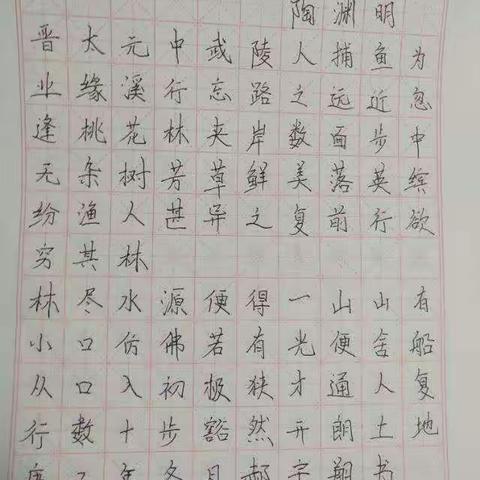 陶渊明
晋太元中武陵人捕鱼为
业缘溪行忘路之远近忽
逢桃花林夹岸数面步中
无杂树芳草鲜美落英缤
纷渔人甚异之复前行欲
穷其林
林尽水源便得一山山有
小口仿佛若有光便舍船
从口入初极狭才通人复
行数十步豁然开朗土地